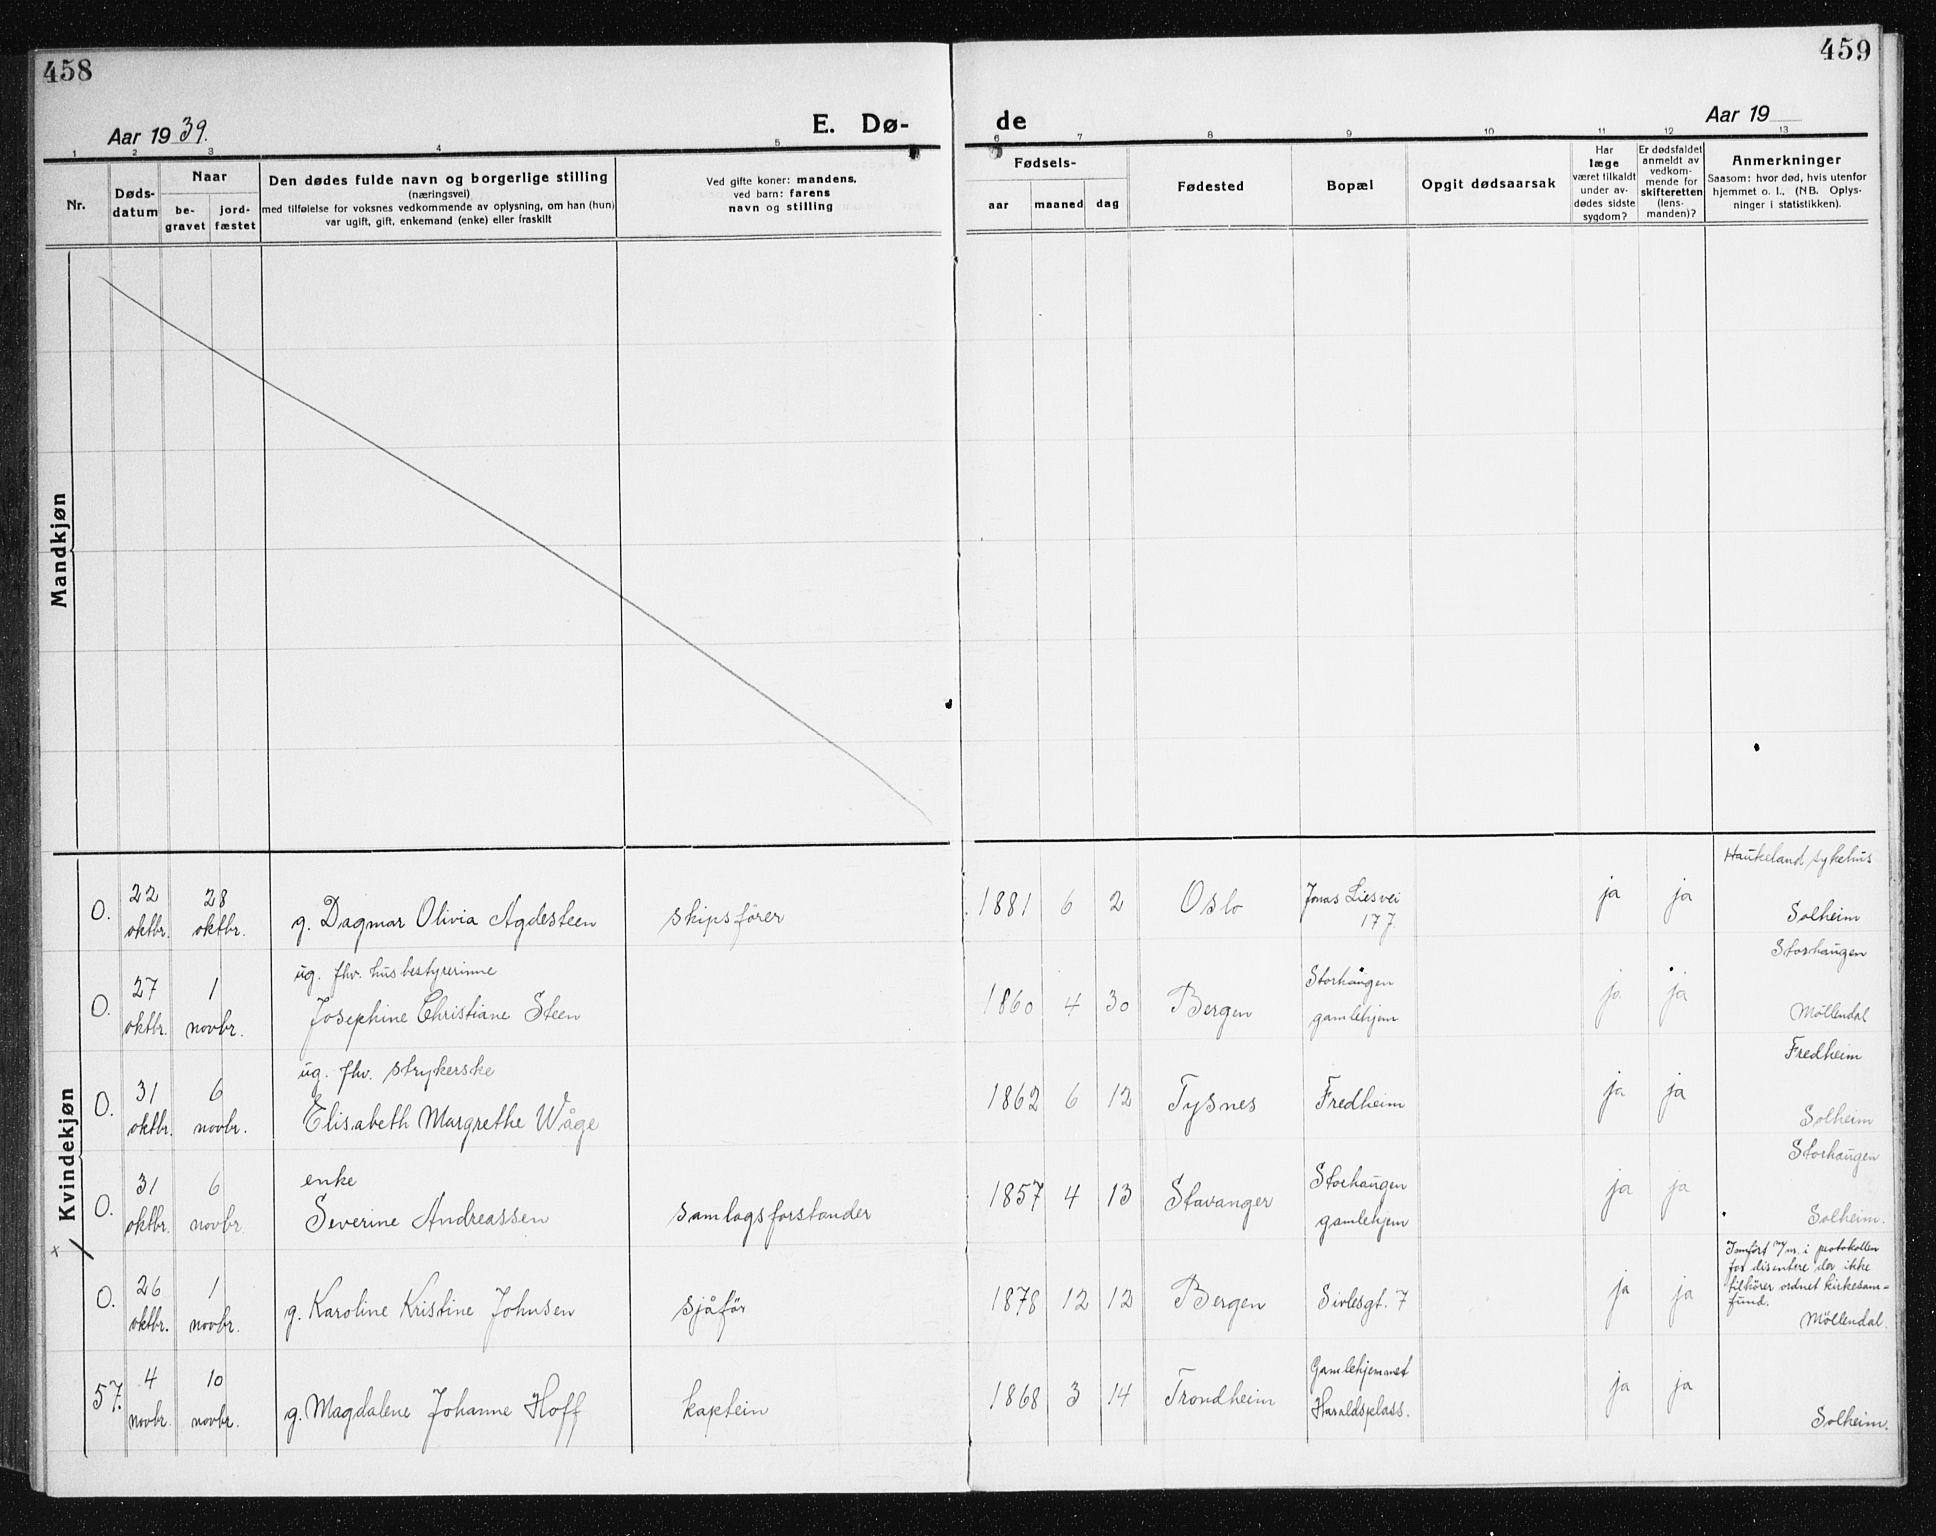 458
459
Aar 1939.
E. Dø-
de
Aar 19
1 2 3 4 5 6 7 8 9 10 11 12 13
Nr.
Døds-
datum
Naar
be-
gravet
jord-
fæstet
Den dødes fulde navn og borgerlige stilling
(næringsvei)
med tilføielse for voksnes vedkommende av oplysning, om han (hun)
var ugift, gift, enkemand (enke) eller fraskilt
Ved gifte koner: mandens,
ved barn: farens
navn og stilling
Fødsels-
aar maaned dag
Fødested
Bopæl
Opgit dødsaarsak
Har
læge
været tilkaldt
under av-
dødes sidste
sygdom?
Er dødsfaldet
anmeldt av
vedkom-
mende for
skifteretten
(lens-
manden)?
Anmerkninger
Saasom: hvor død, hvis utenfor
hjemmet o. l., (NB. Oplys-
ninger i statistikken).
Mandkjøn
Kvindekjøn
Haukeland sykehus
0. 22 oktbr. 28 oktbr. g. Dagmar Olivia Agdesteen skipsfører 1881 6 2 Oslo Jonas Liesvei ja ja
177
Solheim
ug. fhv. husbestyrerinne Storhaugen
0. 27 oktbr. 1 novbr. Josephine Christiane Steen 1860 4 30 Bergen Storhaugen ja ja
gamlehjem
Möllendal
ug. fhv. strykerske Fredheim
0. 31 oktbr. 6 novbr. Elisabeth Margrethe Wåge 1862 6 12 Tysnes Fredheim ja ja
Solheim
enke Storhaugen
0. 31 oktbr. 6 novbr. Severine Andreassen samlagsforstander 1857 4 13 Stavanger Storhaugen ja ja
gamlehjem
Solheim.
x /
Innført m/nr. i protokollen
for disentere der ikke
tilhører ordnet kirkesam-
fund.
0. 26 oktbr. 1 novbr. g. Karoline Kristine Johnsen sjåför 1878 12 12 Bergen Sivlesgt. 7 ja ja
Möllendal.
57. 4 novbr. 10 novbr. g. Magdalene Johanne Hoff kaptein 1868 3 14 Trondheim Gamlehjemmet ja ja
Haraldsplass.
Solheim.